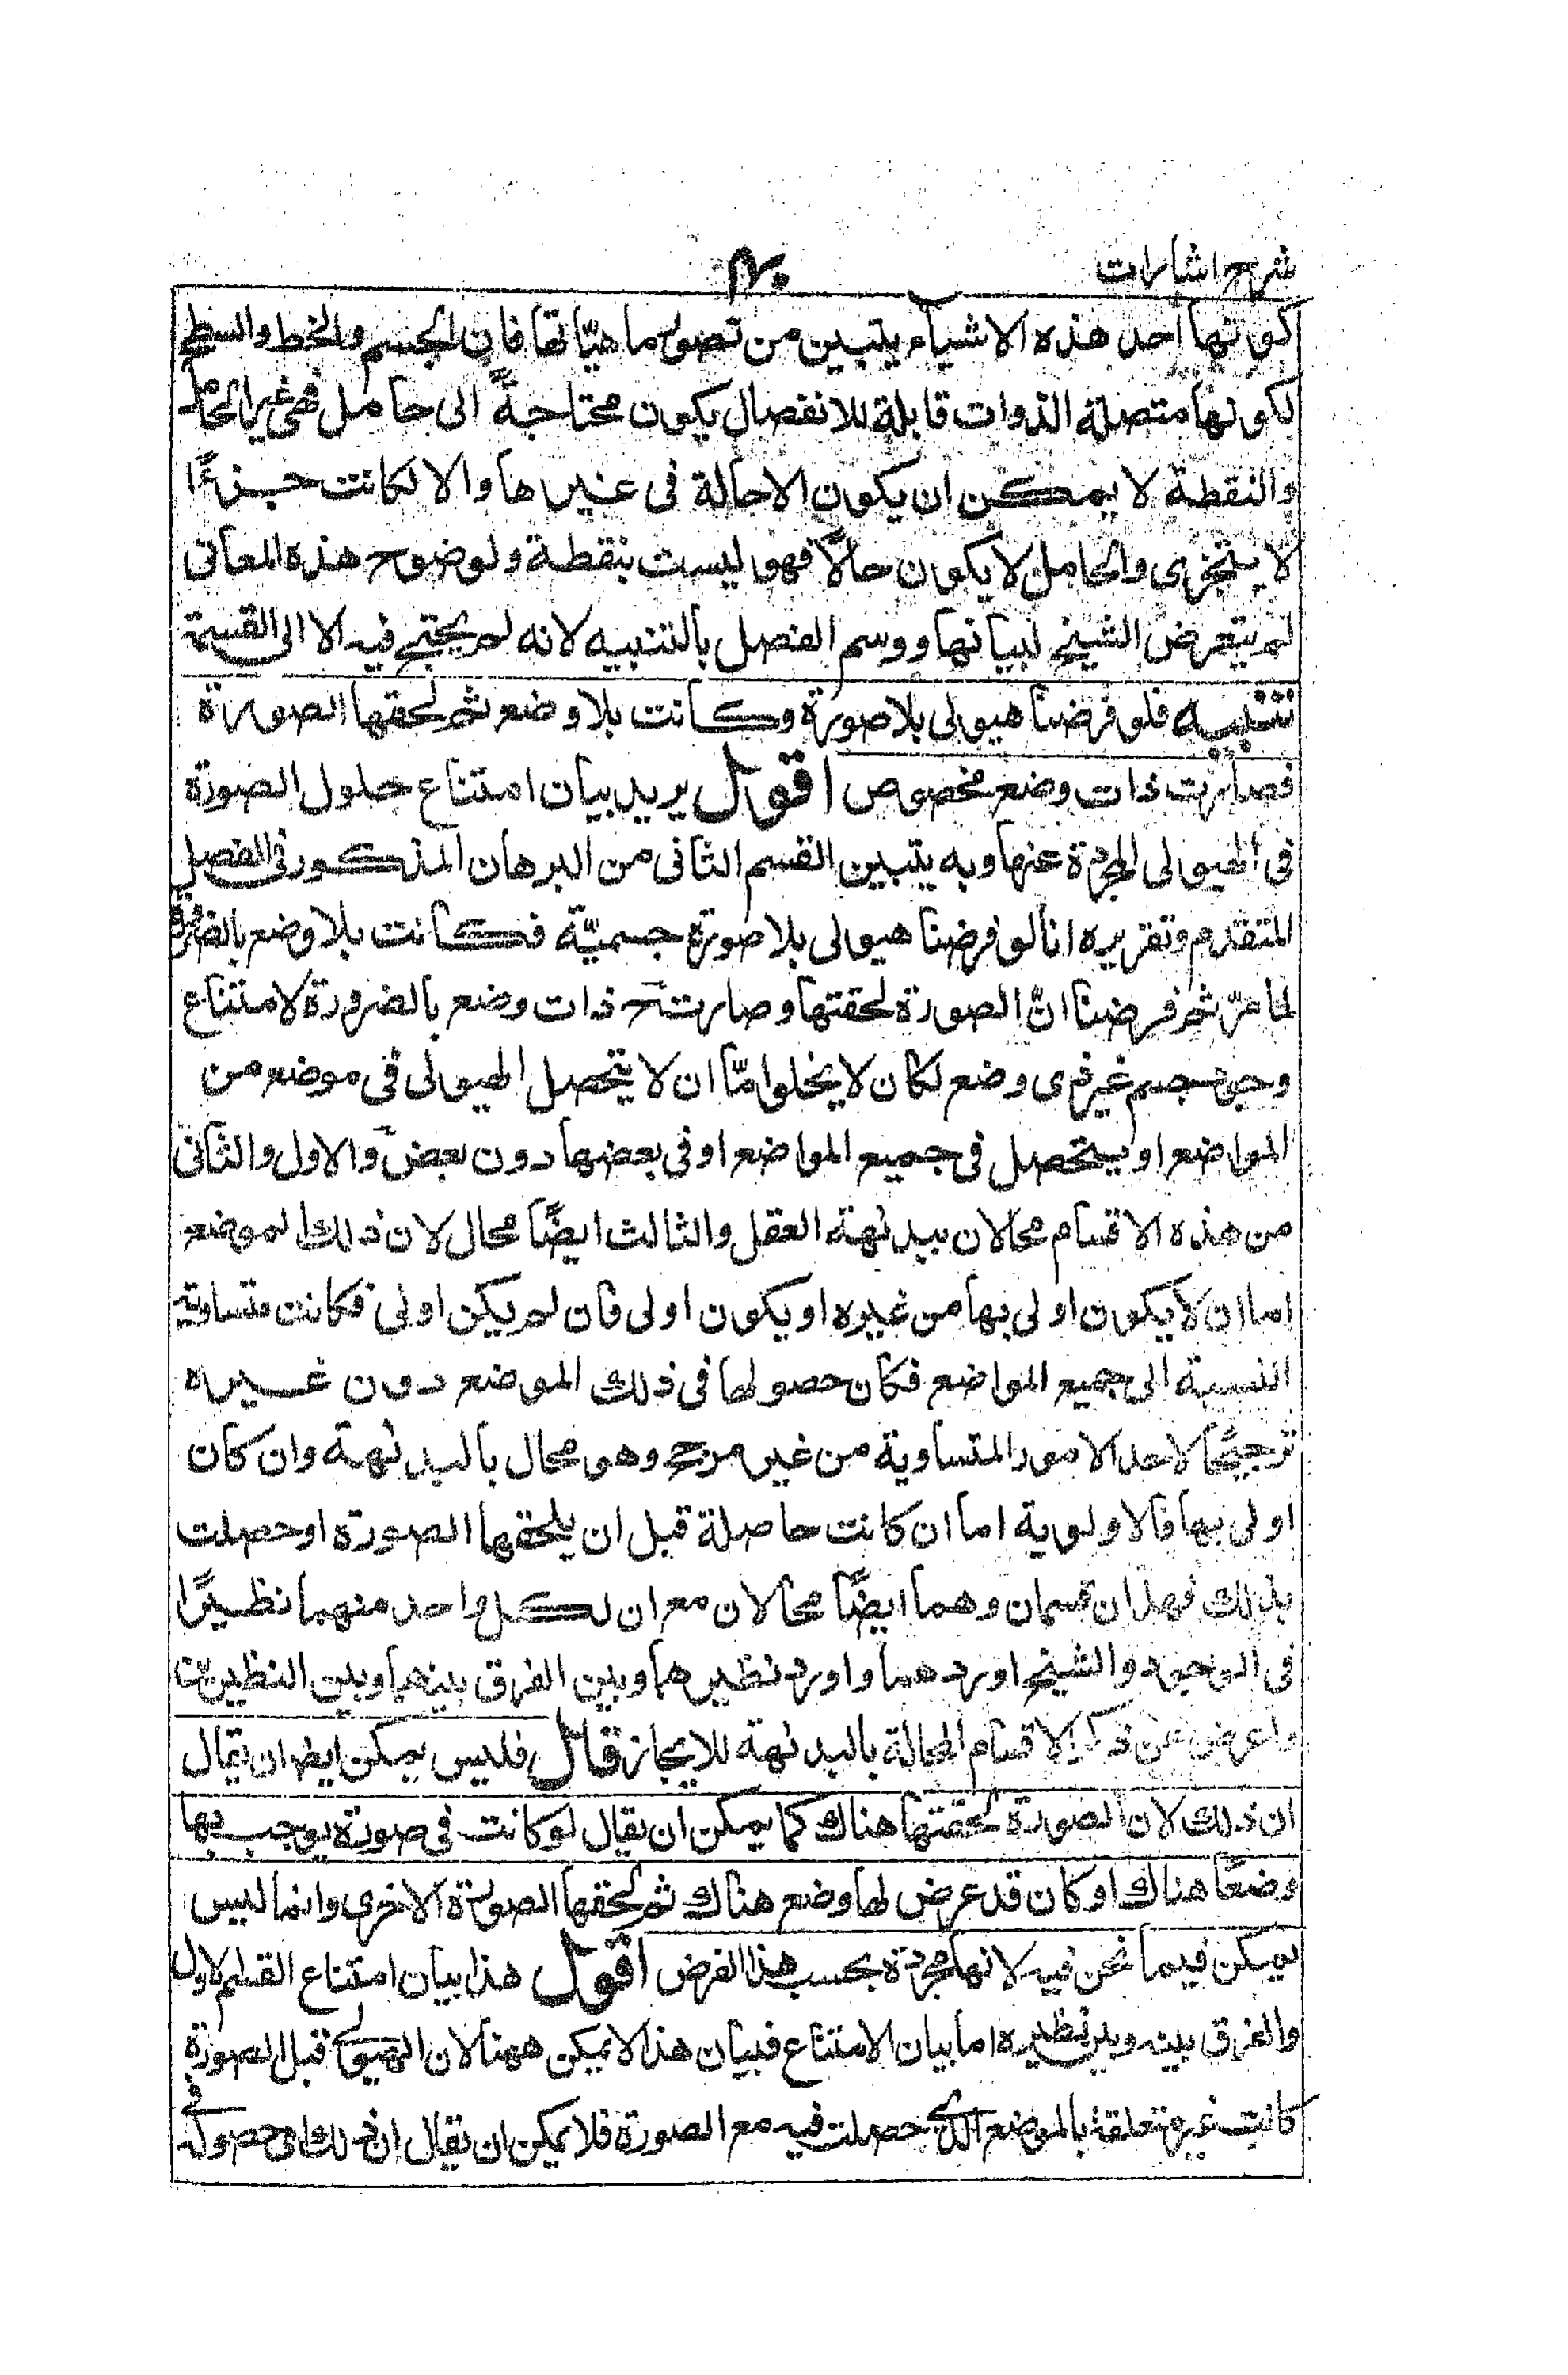 شرح اشارات
كونها احد هذه الاشياء يتبين من تصور ماهيّاتها فان الجسم والخط والسطح
لكونها متصلة الذوات قابلة للانفصال يكون محتاجةً الى حامل فهى غير الحامل
والنقطة لا يمكن ان يكون الا حالة فى غيرها والا لكانت جزءًا
لا يتجزى والحامل لا يكون حالًا فهو ليست بنقطة ولوضوح هذه المعانى
لم يتعرض الشيخ لبيانها ووسم الفصل بالتنبيه لانه لم يحتج فيه الا الى القسمة
تنبيه فلو فرضنا هيولى بلا صورة وكانت بلا وضع ثم لحقها الصورة
فصارت ذات وضع مخصوص اقول يريد بيان امتناع حلول الصورة
فى الهيولى المجردة عنها وبه يتبين القسم الثانى من البرهان المذكور فى الفصل
المتقدم وتقريره انا لو فرضنا هيولى بلا صورة جسميّة فكانت بلا وضع بالضرورة
لما مرّ ثم فرضنا انّ الصورة لحقتها وصارت ح ذات وضع بالضرورة لامتناع
وجود جسم غير ذى وضع لكان لا يخلوا امّا ان لا يتحصل الهيولى فى موضع من
المواضع او يتحصل فى جميع المواضع او فى بعضها دون بعض والاول والثانى
من هذه الاقسام محالان ببديهة العقل والثالث ايضًا محال لان ذلك الموضع
اما ان لا يكون اولى بها من غيره او يكون اولى فان لم يكن اولى فكانت متساوية
النسبة الى جميع المواضع فكان حصولها فى ذلك الموضع دون غيره
ترجيحًا لاحد الامور المتساوية من غير مرجح وهو محال بالبديهة وان كان
اولى بها فالاولوية اما ان كانت حاصلة قبل ان يلحقها الصورة او حصلت
بذلك فهذان قسمان وهما ايضًا محالان مع ان لكل واحد منهما نظيرًا
فى الوجود والشيخ اوردهما واورد نظيرهما وبين الفرق بينهما وبين النظيرين
واعرض عن ذكر الاقسام المحالة بالبديهة للايجاز قال فليس يمكن ايضا ان يقال
ان ذلك لان الصورة لحقتها هناك كما يمكن ان يقال لو كانت فى صورة يوجب بها
وضعًا هناك او كان قد عرض لها وضع هناك ثم لحقها الصورة الاخرى وانما ليس
يمكن فيما نحن فيه لانها مجردة بحسب هذا الفرض اقول هذا بيان امتناع القسم الاول
والفرق بينه وبين نظيره اما بيان الامتناع فبيان هذا لا يمكن ههنا لان الهيولى قبل الصورة
كانت غير متعلقة بالموضع الذى حصلت فيه مع الصورة فلا يمكن ان يقال ان ذلك اى حصوله فى